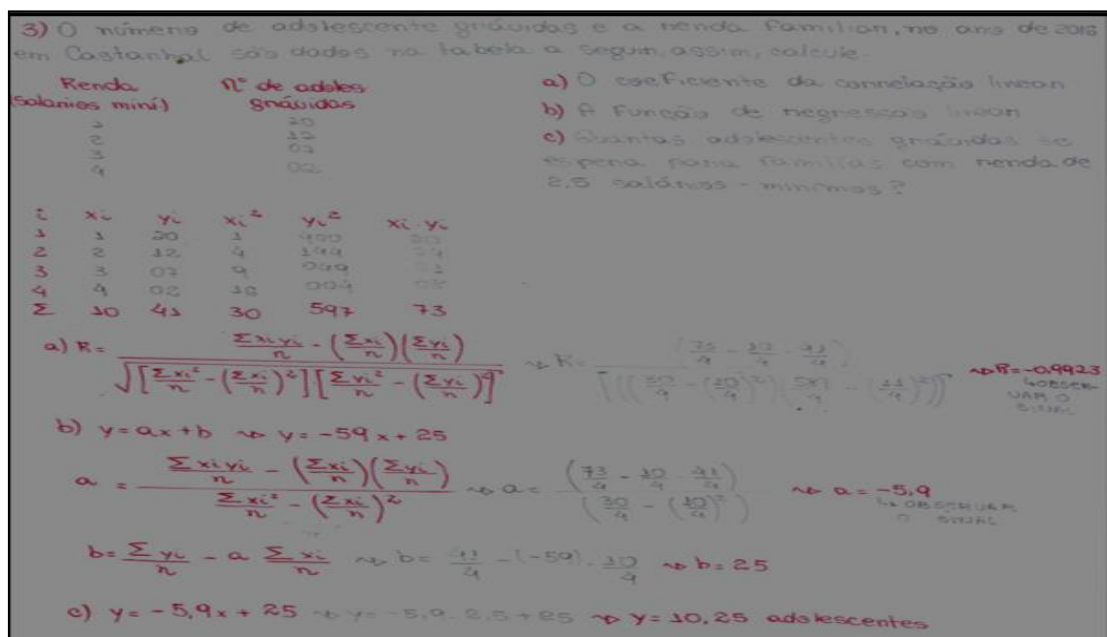 3) O número de adolescente grávidas e a renda familiar, no ano de 2016
em Castanhal são dados na tabela a seguir, assim, calcule.
Renda Nº de adoles a) O coeficiente da correlação linear
(salarios mini) grávidas b) A Função de regressão linear
1 20 c) Quantas adolescentes grávidas se
2 12 espera para famílias com renda de
3 07 2,5 salários - mínimos?
4 02
i xi yi xi² yi² xi·yi
1 1 20 1 400 20
2 2 12 4 144 24
3 3 07 9 049 21
4 4 02 16 004 08
Σ 10 41 30 597 73
a) R = (Σxiyi/n - (Σxi/n)(Σyi/n)) / √[Σxi²/n - (Σxi/n)²][Σyi²/n - (Σyi/n)²] ⇝ R = (73/4 - 10/4 · 41/4) / √(((30/4 - (10/4)²)(597/4 - (41/4)²)) ⇝ R = -0,9923
↳ OBSER-
VAR O
SINAL
b) y = ax + b ⇝ y = -59x + 25
a = (Σxiyi/n - (Σxi/n)(Σyi/n)) / (Σxi²/n - (Σxi/n)²) ⇝ a = (73/4 - 10/4 · 41/4) / (30/4 - (10/4)²) ⇝ a = -5,9
↳ OBSERVAR
O SINAL
b = Σyi/n - a Σxi/n ⇝ b = 41/4 - (-59) · 10/4 ⇝ b = 25
c) y = -5,9x + 25 ⇝ y = -5,9 · 2,5 + 25 ⇝ y = 10,25 adolescentes